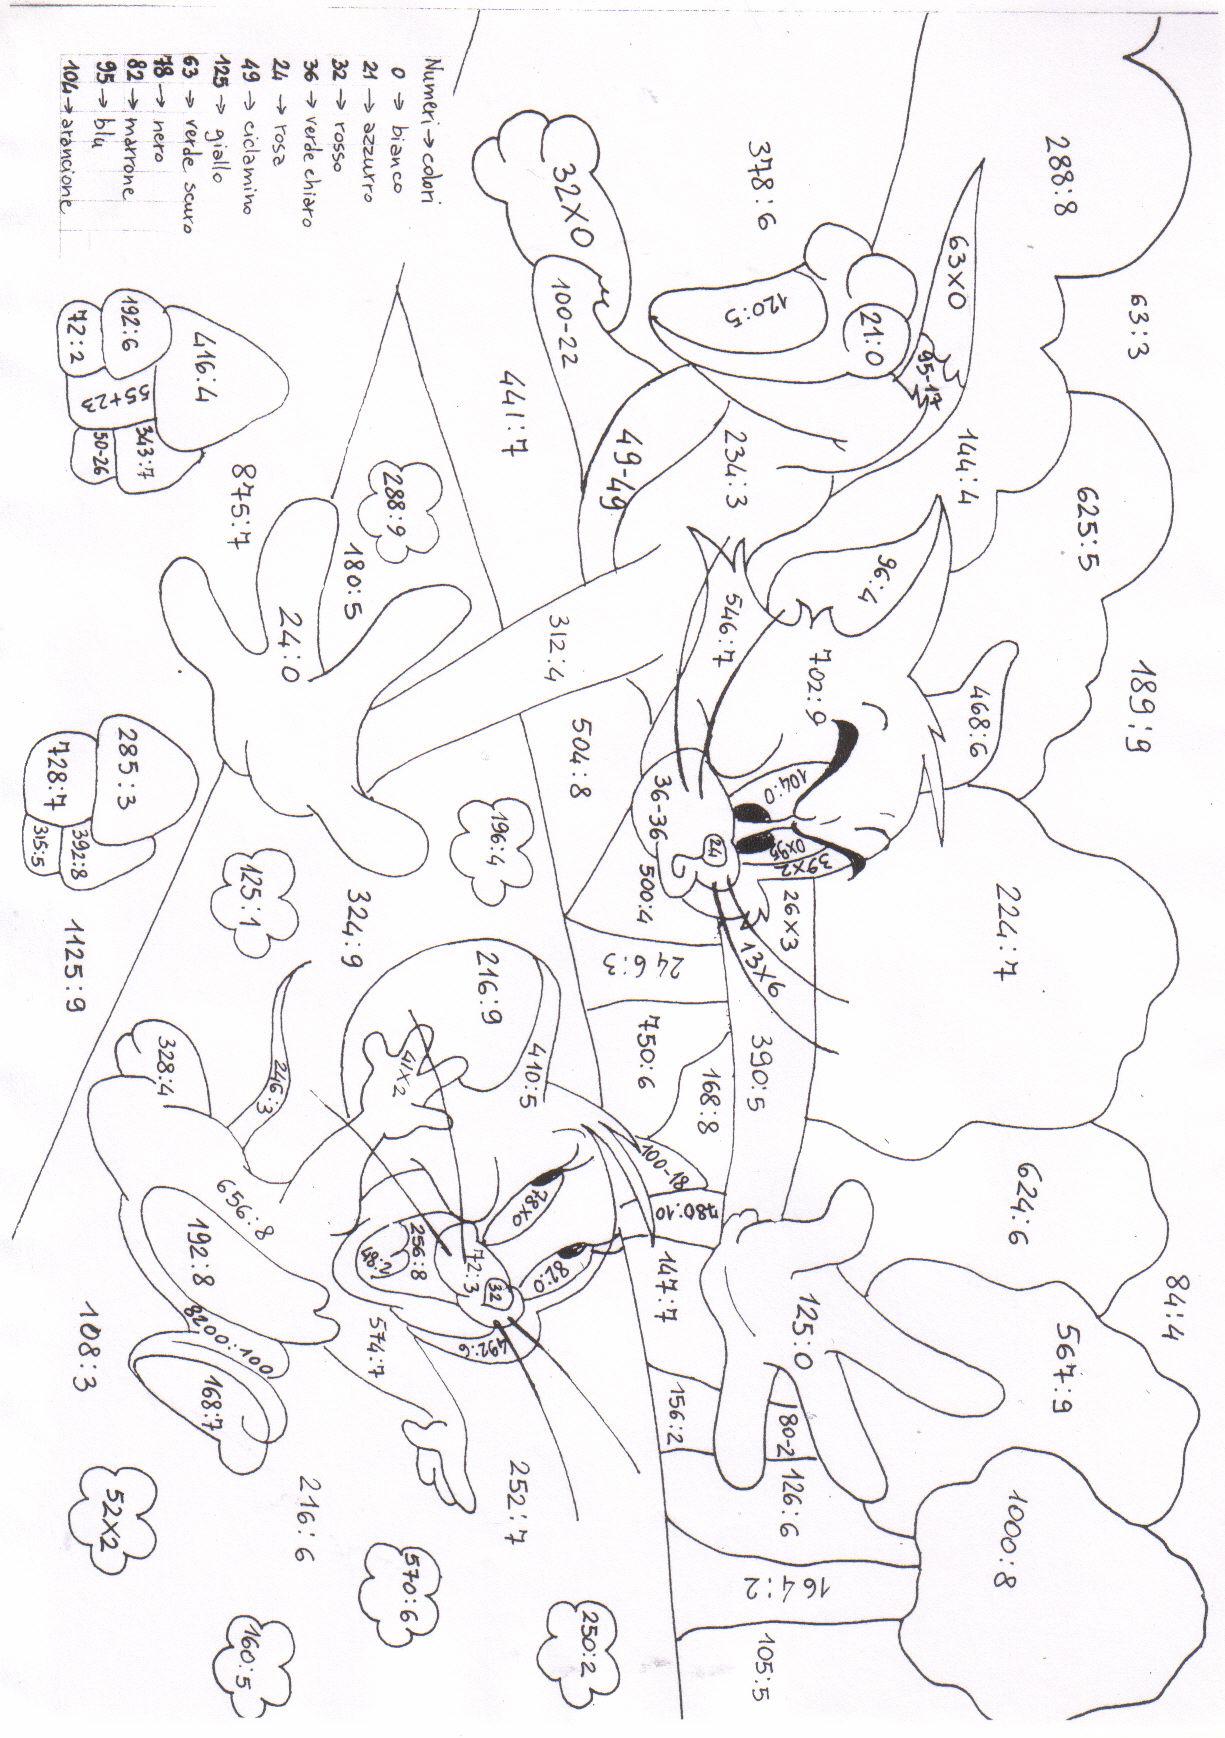 84:4
63:3
189:9
625:5
288:8
567:9
224:7
624:6
1000:8
63x0
144:4
468:6
95-17
96:4
21:0
702:9
39x2
125:0
104:0
0x95
26x3
180-2
126:6
164:2
378:6
120:5
234:3
546:7
13x6
390:5
105:5
24
168:8
780:10
36-36
100-18
147:7
156:2
500:4
24 6:3
750:6
49-49
504:8
250:2
32x0
100-22
312:4
78x0
82:0
410:5
441:7
32
252:7
196:4
216:9
72:3
492:6
Numeri → colori
0 → bianco
21 → azzurro
32 → rosso
36 → verde chiaro
24 → rosa
49 → ciclamino
125 → giallo
63 → verde scuro
78 → nero
82 → marrone
95 → blu
104 → arancione
288:9
41x2
256:8
48:2
570:6
180:5
324:9
574:7
24:0
246:3
216:6
875:7
125:1
656:8
160:5
416:4
192:8
8200:100
168:7
328:4
192:6
343:7
55+23
285:3
52x2
72:2
50-26
728:7
392:8
315:5
1125:9
108:3